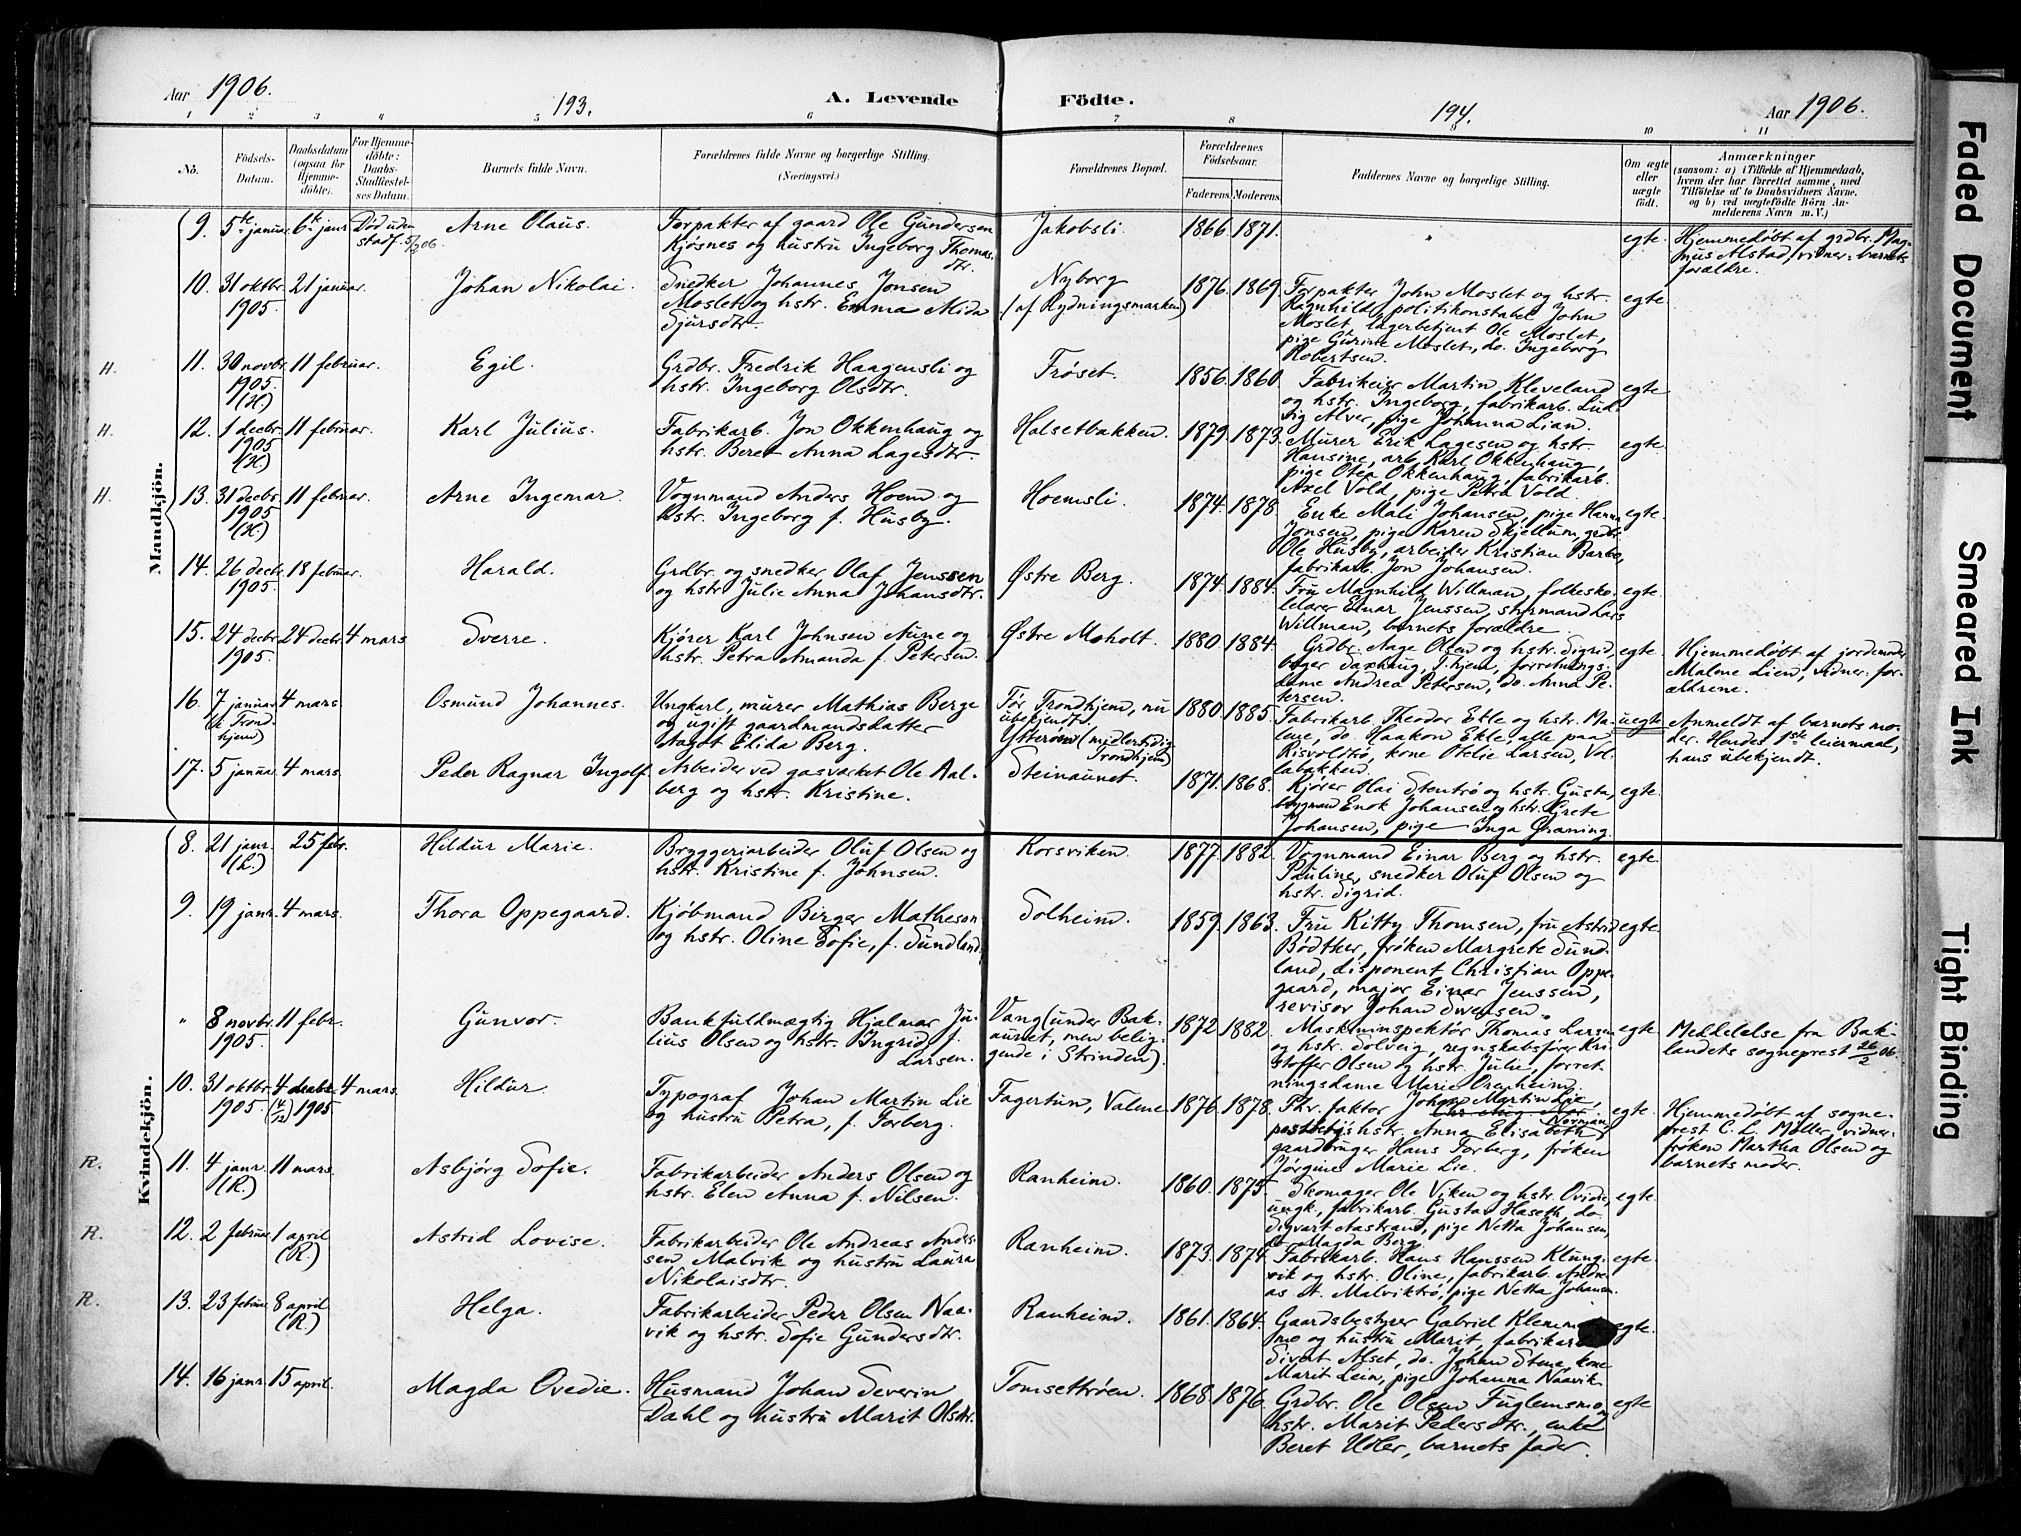 Aar 1906.
193.
A. Levende
Födte.
194.
Aar 1906.
1 2 3 4 5 6 7 8 9 10 11
No.
Födsels-
Datum.
Daabsdatum
(ogsaa for
Hjemme-
döbte).
For Hjemme-
döbte:
Daabs-
Stadfæstel-
ses Datum.
Barnets fulde Navn.
Forældrenes fulde Navne og borgerlige Stilling.
(Næringsvei.)
Forældrenes Bopæl.
Forældrenes
Födselsaar.
Faderens. Moderens.
Faddernes Navne og borgerlige Stilling.
Om ægte
eller
uægte
født.
Anmærkninger
(saasom: a) i Tilfælde af Hjemmedaab,
hvem der har forrettet samme, med
Tilföielse af to Daabsvidners Navne.
og b) ved uægtefödte Börn An-
melderens Navn m. V.)
Mandkjön.
9. 5te januar 6te janr. Död uden
stadf. 5/2 06.
Arne Olaus.
Forpakter af gaard Ole Gundersen
Kjøsnes og hustru Ingeborg Thomas-
dtr.
Jakobsli
1866. 1871.
"
egte.
Hjemmedøbt af grdbr. Mag-
nus Alstad, vidner: barnets
forældre.
10. 31 oktbr. 21 januar.
1905.
Johan Nikolai.
Snedker Johannes Jonsen
Moslet og hstr. Emma Mida
Sjursdtr.
Nyborg
(af Rydningsmarken)
1876. 1869.
Forpakter John Moslet og hstr.
Ragnhild, politikonstabel John
Moslet, lagerbetjent Ole Moslet,
pige Gurine Moslet, do. Ingeborg
Robertsen.
egte
H.
11. 30 novbr. 11 februar.
1905.
(H.)
Egil.
Grdbr. Fredrik Haagensli og
hstr. Ingeborg Olsdtr.
Frøset.
1856. 1860.
Fabrikeier Martin Kleveland
og hstr. Ingeborg, fabrikarb. Lud-
vig Alver, pige Johanna Lian.
egte
H.
12. 1 decbr. 11 februar.
1905
(H.)
Karl Julius.
Fabrikarb. Jon Okkenhaug og
hstr. Beret Anna Lagesdtr.
Halsetbakken.
1879. 1873.
Murer Erik Lagesen og hstr.
Hansine, arb. Karl Okkenhaug,
pige Otea Okkenhaug, fabrikarb.
Axel Vold, pige Petra Vold.
egte
H.
13. 31 decbr. 11 februar.
1905
(H.)
Arne Ingemar.
Vognmand Anders Hoem og
hstr. Ingeborg f. Husby.
Hoemsli.
1874. 1878.
Enke Mali Johansen, pige Hanna
Jonsen, pige Karen Skjellum, grdbr.
Ole Husby, arbeider Kristian Barbo,
fabrikarb. Jon Johansen.
egte.
14. 26 decbr. 18 februar.
1905.
Harald.
Grdbr. og snedker Olaf Jenssen
og hstr Julie Anna Johansdtr.
Østre Berg.
1874. 1884.
Fru Magnhild Willman, folkesko-
lelærer Einar Jenssen, styrmand Lars
Willman, barnets forældre.
egte.
15. 24 decbr. 24 decbr. 4 mars
1905.
Sverre.
Kjører Karl Johnsen Aune og
hstr. Petra Amanda f. Petersen.
Østre Moholt.
1880. 1884.
Grdbr. Aage Olsen og hstr. Sigrid,
bager Saxhaug, T.hjem, forretnings-
dame Andrea Petersen, do. Anna Pe-
tersen.
egte
Hjemmedøbt af jordemoder
Malene Lien, vidner: for-
ældrene.
16. 7 januar 4 mars.
(i Trond-
hjem)
Osmund Johannes.
Ungkarl, murer Mathias Berge
og ugift gaardmandsdatter
Aagot Elida Berg.
Før Trondhjem, nu
ubekjendt.
Ytterøen (midlertidig
Trondhjem)
1880. 1885.
Fabrikarb. Theodor Ekle og hstr. Ma-
lene, do. Haakon Ekle, alle paa
Risvoldtrø, kone Otelie Larsen, Vol-
labakken.
uegte
Anmeldt af barnets mo-
der. Hendes 1ste leiermaal,
hans ubekjendt.
17. 5 januar 4 mars.
Peder Ragnar Ingolf.
Arbeider ved gasværket Ole Aal-
berg og hstr. Kristine.
Steinaunet.
1871. 1868.
Kjører Olai Stentrø og hstr. Gusta,
bergmand Enok Johansen og hstr. Grete
Johansen, pige Inga Graning.
egte.
Kvindekjön.
8. 21 janr. 25 febr.
(L.)
Hildur Marie.
Bryggeriarbeider Oluf Olsen og
hstr. Kristine f. Johnsen.
Korsviken.
1877. 1882.
Vognmand Einar Berg og hstr.
Pauline, snedker Oluf Olsen og
hstr. Sigrid.
egte.
9. 19 janr. 4 mars.
Thora Oppegaard.
Kjøbmand Birger Matheson
og hstr. Oline Sofie, f. Sundland.
Solheim.
1859. 1863.
Fru Kitty Thomsen, fru Astrid
Bødtker, frøken Margrete Sund-
land, disponent Christian Oppe-
gaard, major Einar Jenssen,
revisor Johan Swensen.
egte.
" 8 novbr. 11 febr.
1905.
Gunvor.
Bankfuldmægtig Hjalmar Ju-
lius Olsen og hstr. Ingrid f.
Larsen.
Vang (under Bak-
aunet, men belig-
gende i Strinden).
1872 1882.
Maskininspektør Thomas Larsen
og hstr. Solveig, regnskabsfører Kri-
stoffer Olsen og hstr. Julie, forret-
ningsdame Marie Orenheim.
egte
Meddelelse fra Bak-
landets sogneprest 26/2 06.
10. 31 oktbr. 4 decbr. 4 mars.
1905. (4/12) 1905
Hildur
Typograf Johan Martin Lie
og hustru Petra, f. Forberg.
Fagertun, Valene
1876. 1878.
Fhr. faktor Johan Martin Lie,
Norman,
hstr. Anna Elisabeth,
gaardbruger Hans Forberg, frøken
Jørgine Marie Lie.
egte.
Hjemmedøbt af sogne-
prest C. L. Møller, vidner:
frøken Martha Olsen og
barnets moder.
R.
11. 4 janr. 11 mars.
(R.)
Asbjørg Sofie.
Fabrikarbeider Anders Olsen og
hstr. Elen Anna f. Nilsen.
Ranheim.
1860. 1875.
Skomager Ole Viken og hstr. Ovidie,
ungk., fabrikarb. Gustav Haseth, do
Sigvart Aastrand, pige Netta Johansen,
do Magda Berg.
egte.
R.
12. 2 februar 1 april
(R.)
Astrid Lovise.
Fabrikarbeider Ole Andreas Anders-
sen Malvik og hustru Laura
Nikolaisdtr.
Ranheim.
1873. 1874.
Fabrikarb. Hans Hanssen Klung-
vik og hstr. Oline, fabrikarb. Andre-
as A. Malviktrø, pige Netta Johansen.
egte.
R.
13. 23 februar 8 april
(R.)
Helga.
Fabrikarbeider Peder Olsen Naa-
vik og hstr. Sofie Gundersdtr.
Ranheim.
1861. 1864.
Gaardsbestyrer Gabriel Klemme
mo og hustru Marit, fabrikar
Sivert Alset, do. Johan Stene, kone
Marit Lein, pige Johanna Naavik.
egte.
14. 16 janr. 15 april.
Magda Ovedie.
Husmand Johan Severin
Dahl og hustru Marit Olsdtr.
Tomsettrøen.
1868. 1876.
Grdbr. Ole Olsen Fuglemsmo og
hstr. Marit Pedersdtr., enke
Beret Udler, barnets fader.
egte
Faded Document
Smeared Ink
Tight Binding